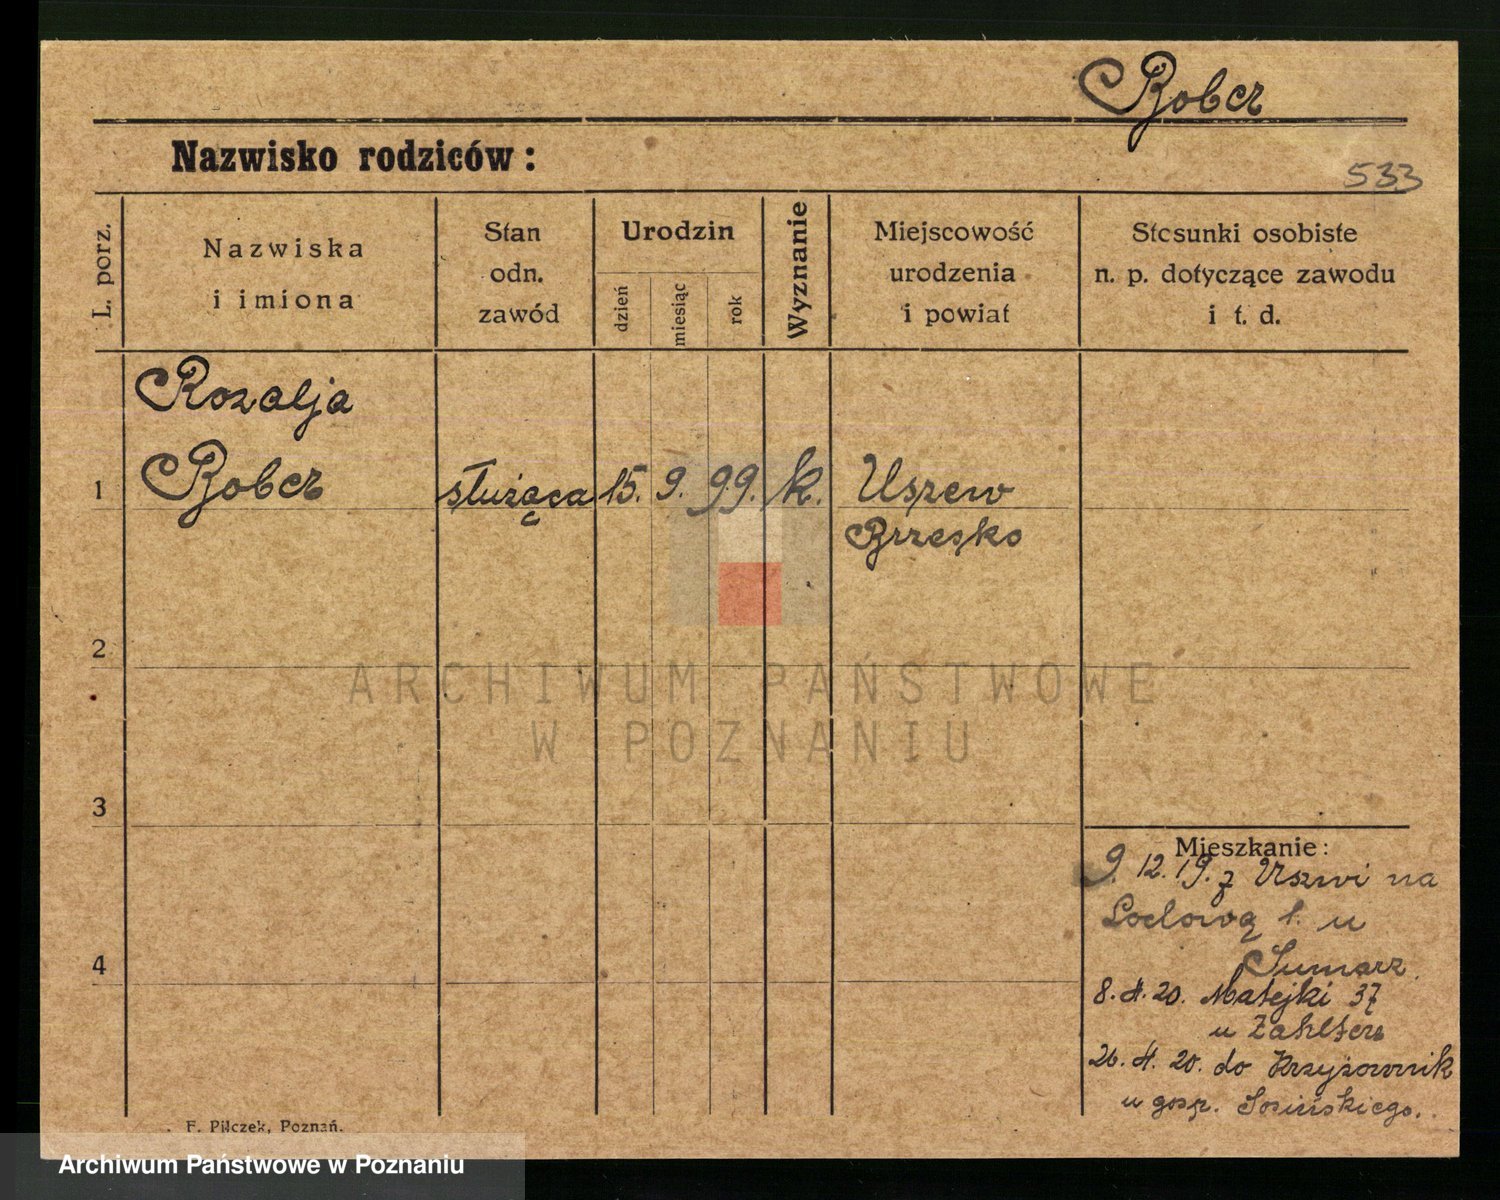 Bober
Nazwisko rodziców:
533
L. porz.
Nazwiska
i imiona
Stan
odn.
zawód
Urodzin
dzień
miesiąc
rok
Wyznanie
Miejscowość
urodzenia
i powiat
Stosunki osobiste
n. p. dotyczące zawodu
i t. d.
Rozalja
1 Bober służąca 15. 9. 99. k. Uszew
Brzesko
2
3
4
Mieszkanie:
9. 12. 19. z Uszwi na
Lodową 1. u
8. 4. 20. Matejki 37
u
26. 4. 20. do Krzyżownik
u gosp. Sosińskiego.
F. Pilczek, Poznań.
ARCHIWUM PAŃSTWOWE
W POZNANIU
Archiwum Państwowe w Poznaniu